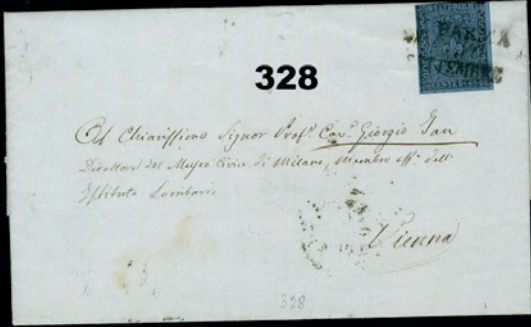 PARMA
SETTEMBRE
328
Al Chiarissimo Signor Prof.r Cav.r Giorgio Jan
Direttore del Museo Civico di Milano, Membro eff.o dell'
Istituto Lombardo
Vienna
328